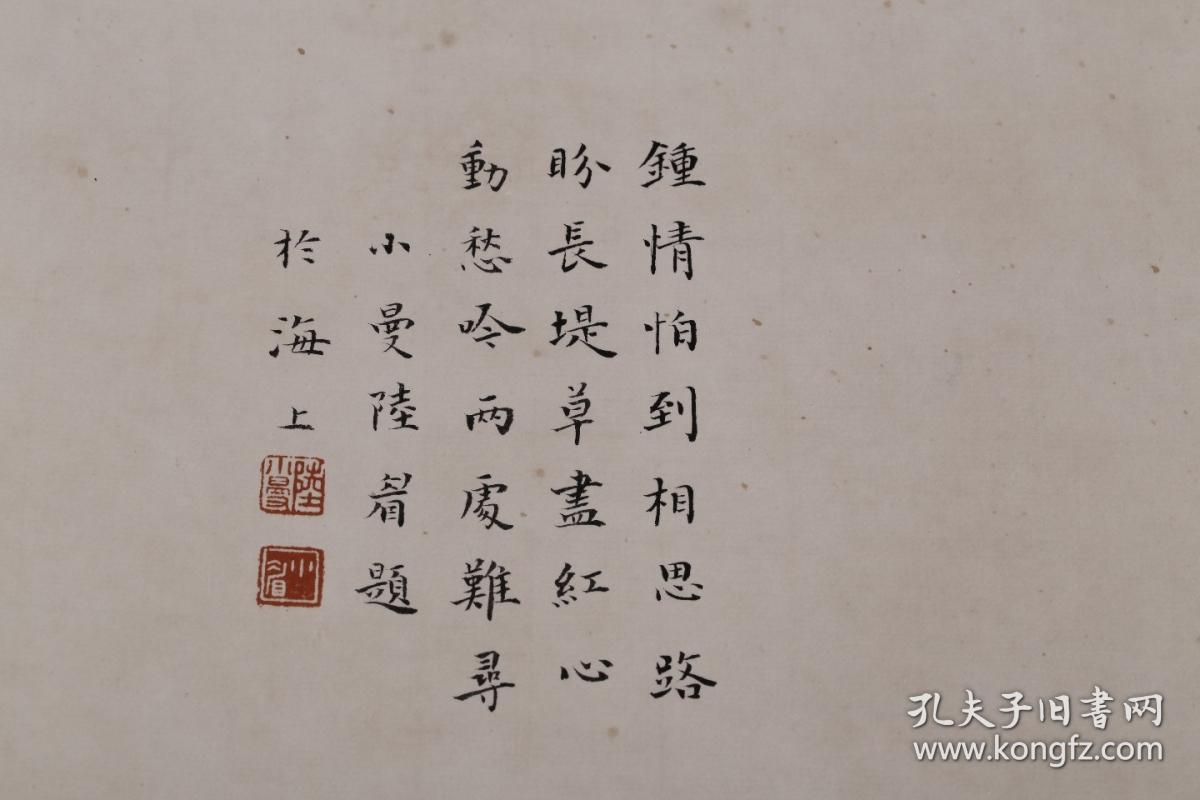 鍾情怕到相思路
盼長堤草盡紅心
動愁吟兩處難尋
小曼陸眉題
於海上
陸小曼
小眉
孔夫子旧書网
www.kongfz.com